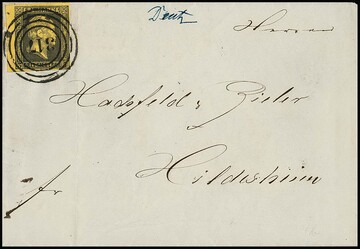 317
Deutz
Herren
Hadsfeld & Zieler
Hildesheim
fr